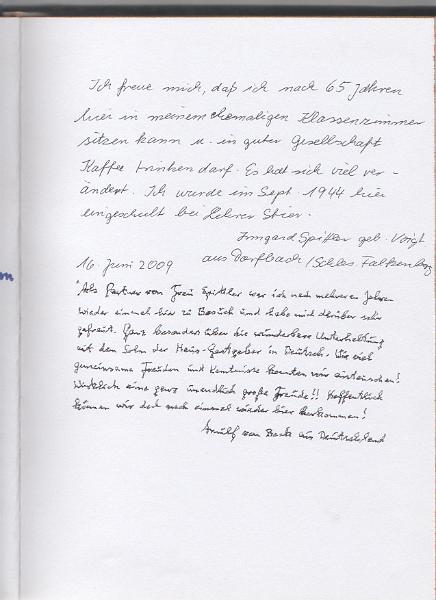 Ich freue mich, daß ich nach 65 Jahren
hier in meinem ehemaligen Klassenzimmer
sitzen kann u. in guter Gesellschaft
Kaffee trinken darf. Es hat sich viel ver-
ändert. Ich wurde im Sept. 1944 hier
eingeschult bei Lehrer Stier.
Irmgard Spittler geb. Voigt
aus Dorfbach/Schles. Falkenberg
16. Juni 2009
"Als Partner von Frau Spittler war ich nach mehreren Jahren
wieder einmal hier zu Besuch und habe mich darüber sehr
gefreut. Ganz besonders über die wunderbare Unterhaltung
mit dem Sohn der Haus-Gastgeber in Deutsch. Wie viel
gemeinsame Freuden und Kenntnisse konnten wir austauschen!
Wirklich eine ganz unendlich große Freude!! Hoffentlich
können wir doch noch einmal wieder hier herkommen!
von aus Deutschland